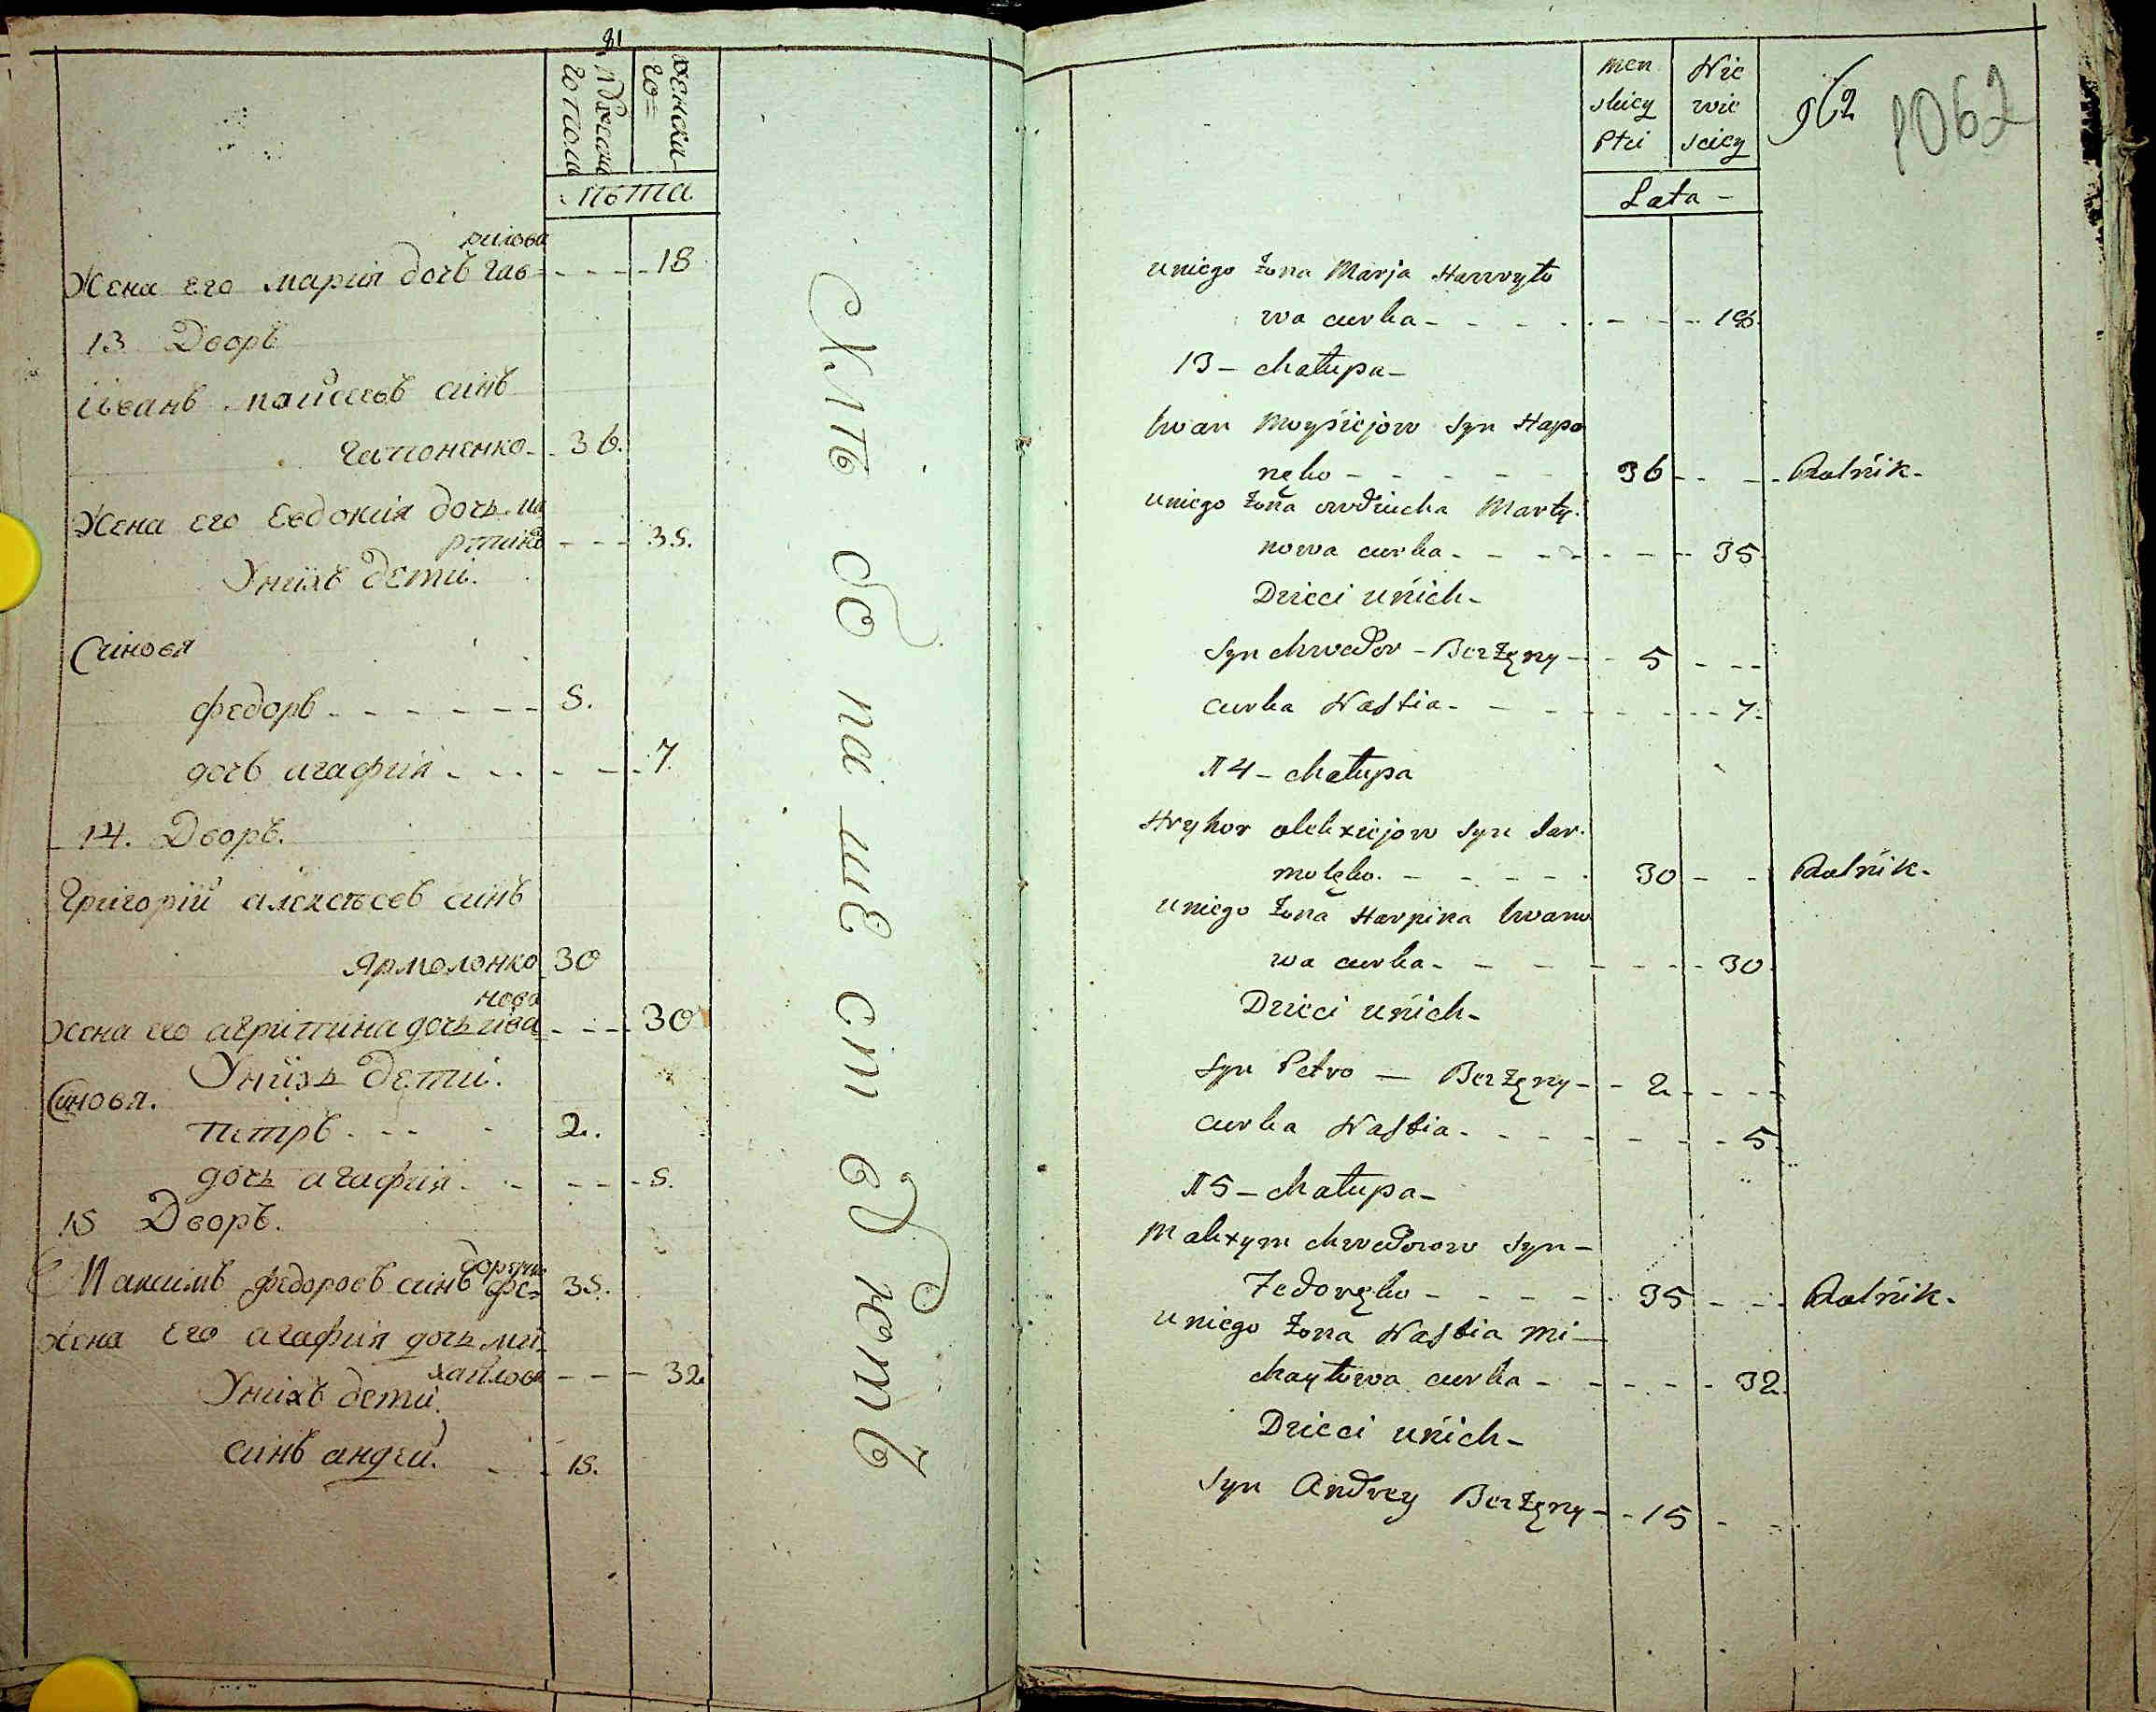 81
мужеска
го пола
женска
го=
Лѣта
рилова
Жена его мария дочь гав= - - - - 18
13 Дворъ
Иванъ моисеевъ синъ
гапоненко - 36.
Жена его Евдокия дочь ма
ртинова - - - 35.
Унихъ дети.
Синовя
федоръ - - - - - - 5.
дочь агафия - - - - - 7
14. Дворъ.
Григорий алексеевъ синъ
Ярмоленко 30
нова
жена его агрипина дочь ива= - - - 30
Унихъ дети.
Синовя.
петръ - - - 2.
дочь агафия - - - - - 5.
15 Дворъ.
доренко
Максимъ федоровъ синъ фе= 35.
жена его агафия дочь ми
хайлова - - - 32
Унихъ дети.
синъ андрей. - - 15.
Men
skiey
Płci
Nie
wie
sciey
962
1062
Lata -
uniego Żona Marja Hawryło
wa curka - - - - - - - 18.
13 - chałupa -
Iwan Moysiejow Syn Hapo
nęko - - - - - 36 - - - Rolnik -
uniego Żona owdiucha Marty.
nowa curka - - - - - - 35
Dzieci unich -
Syn chwedor - Bezżęny - - 5 - - -
curka Nastia - - - - - - - 7.
14 - chałupa
Hryhor alexiejow Syn Jar.
molęko. - - - - - 30 - - Rolnik -
uniego Żona Harpina Iwano
wa curka - - - - - - - 30
Dzieci unich -
Syn Petro - Bezżęny - - 2 - - - -
curka Nastia - - - - - - - 5
15 - chałupa -
Malxym chwedorow Syn -
Fedoręko - - - - - 35 - - - Rolnik -
uniego Żona Nastia Mi -
chayłowa curka - - - - - 32.
Dzieci unich -
Syn Andrey Bezżęny - - 15 - -